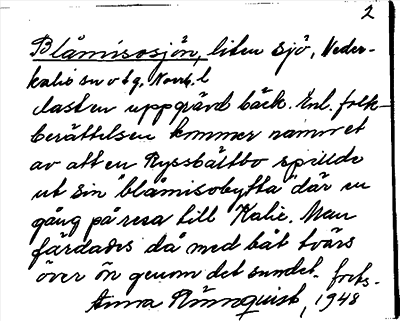 2
Blåmisosjön, liten sjö, Neder-
kalix sn o tg, Norrb. l
dast en uppgrävd bäck. Enl. folk-
berättelsen kommer namnet
av att en Ryssbältbo spillde
ut sin "blåmisobytta" där en
gång på resa till Kalix. Man
färdades då med båt tvärs
över ön genom det sundet. forts.
Anna Rönnquist, 1948